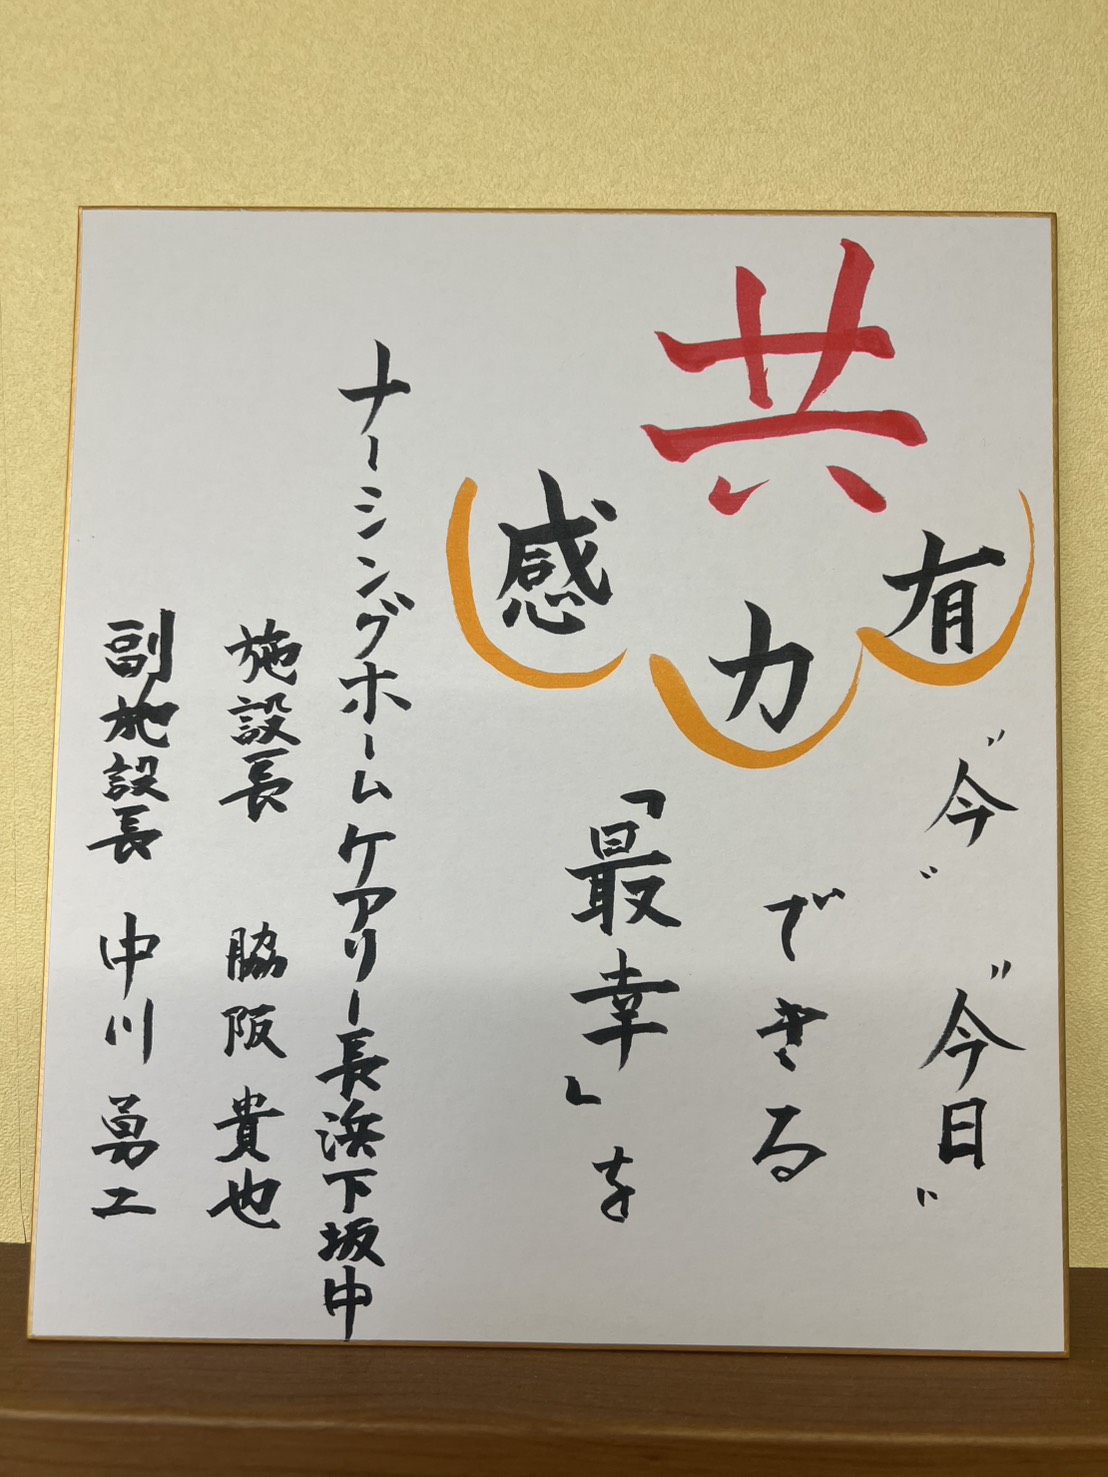 共
有
力
感
"今" "今日"
できる
「最幸」を
ナーシングホームケアリー長浜下坂中
施設長 脇阪貴也
副施設長 中川勇工